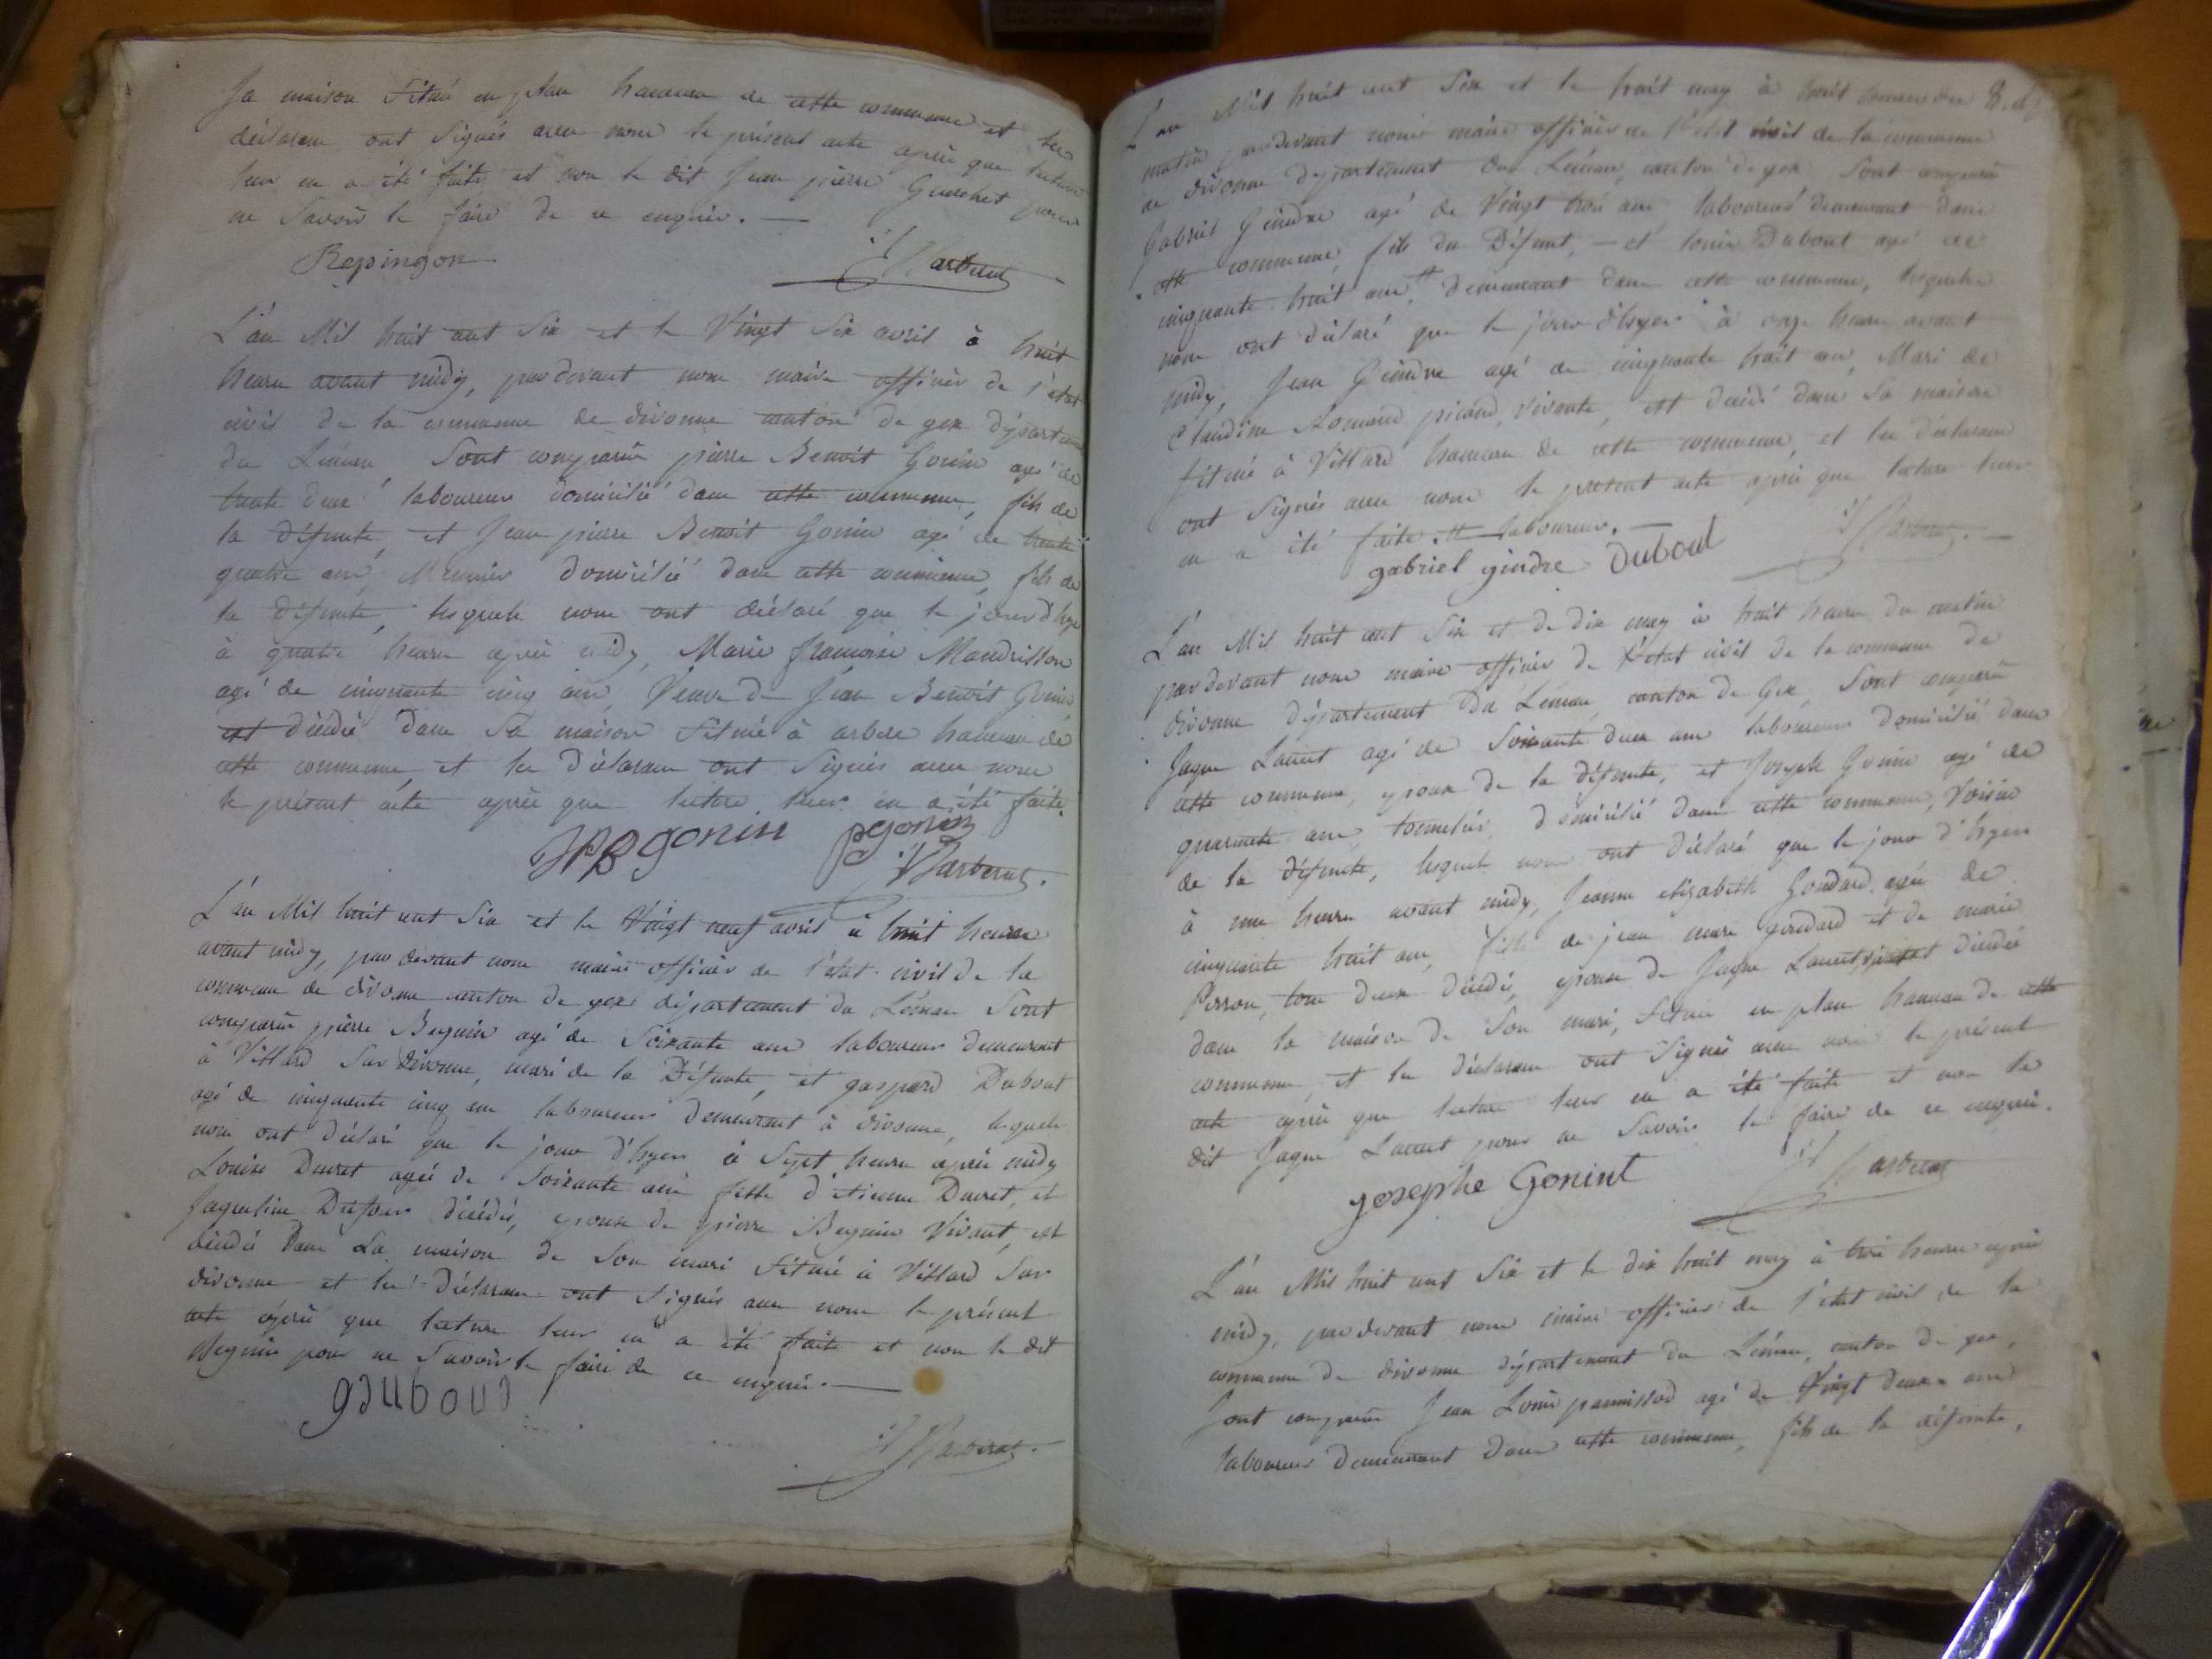 Sa maison Situé en plan hameau de cette commune et les
déclarans ont Signés avec nous le présent acte après que lecture
leur en a été faite et non le dit Jean pierre Guechet pour
ne Savoir le faire de ce enquis. —
Repingon
L'an Mil huit cent Six et le Vingt Six avril à huit
heures avant midy, pardevant nous maire officier de l'état
civil de la commune de divonne canton de gex département
du Léman Sont comparus pierre Benoit Gonin agé de
trente deux laboureur domicilié dans cette commune, fils de
la défunte, et Jean pierre Benoit Gonin agé de trente
quatre ans, Meunier domicilié dans cette commune, fils de
la défunte, lesquels nous ont déclaré que le jour d'hyer
à quatre heures après midy, Marie françoise Mandrisson
agé de cinquante cinq ans, Veuve de Jean Benoit Gonin
est décédée dans Sa maison Situé à arbere hameau de
cette commune, et les déclarans ont Signés avec nous
le présent acte après que lecture leur en a été faite.
JPB gonin pgonin
L'an Mil huit cent Six et le Vingt neuf avril à huit heures
avant midy, pardevant nous maire officier de l'état civil de la
commune de divonne canton de gex département du Léman Sont
comparus pierre Beguin agé de Soixante ans laboureur demeurant
à Villard Sur divonne, mari de la Défunte, et gaspard Dubout
agé de cinquante cinq ans laboureur demeurant à divonne, lesquels
nous ont déclaré que le jour d'hyer à Sept heures après midy
Louise Duret agée de Soixante ans fille d'etienne Duret, et
Jaqueline Dufour décédés, epouse de pierre Beguin Vivant, est
décédée dans La maison de Son mari Située à Villard Sur
divonne et les Déclarans ont Signés avec nous le présent
acte après que lecture leur en a été faite et non le dit
Beguin pour ne Savoir le faire de ce enquis. —
gdubout
L'an Mil huit cent Six et le huit may à huit heures du
matin pardevant nous maire officier de l'état civil de la commune
de divonne département du Léman, canton de gex Sont comparus
Gabriel Geindre agé de Vingt trois ans laboureur demeurant dans
cette commune, fils du Défunt, — et louis Dubout agé de
cinquante huit ans # demeurant dans cette commune, lesquels
nous ont déclaré que le jour d'hyer à onze heures avant
midy, Jean Geindre agé de cinquante huit ans, Mari de
Claudine Romaine picard, vivante, est décédé dans Sa maison
Situé à Villard hameau de cette commune, et les déclarans
ont Signés avec nous le présent acte après que lecture leur
en a été faite. # laboureur. —
gabriel gindre Dubout
L'an Mil huit cent Six et le dix may à huit heures du matin
pardevant nous maire officier de l'état civil de la commune de
divonne département du Léman, canton de Gex, Sont comparus
Jaque Lancet agé de Soixante deux ans laboureur domicilié dans
cette commune, epoux de la défunte, et Joseph Gonin agé de
quarante ans, tonnelier, domicilié dans cette commune, Voisin
de la défunte, lesquels nous ont déclaré que le jour d'hyer
à une heure avant midy, Jeanne elizabeth Goudard agée de
cinquante huit ans, fille de jean marc goudard et de marie
Perron, tous deux décédés, epouse de Jaque Lancet, est décédée
dans la maison de Son mari, Située en plan hameau de cette
commune, et les déclarans ont Signés avec nous le présent
acte après que lecture leur en a été faite et non le
dit Jaque Lancet pour ne Savoir le faire de ce enquis.
josephe Gonint
L'an Mil huit cent Six et le dix huit may à trois heures après
midy, pardevant nous maire officier de l'état civil de la
commune de divonne département du Léman, canton de gex,
Sont comparus Jean Louis pannissod agé de Vingt deux ans
laboureur demeurant dans cette commune, fils de la défunte,